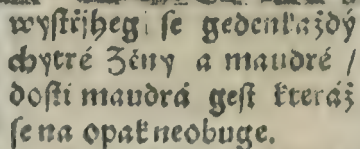 wyſtřjhey ſe gedenkaždý
chytré Zény a maudré /
doſti maudrá geſt kteráž
ſe na opak neobuge.